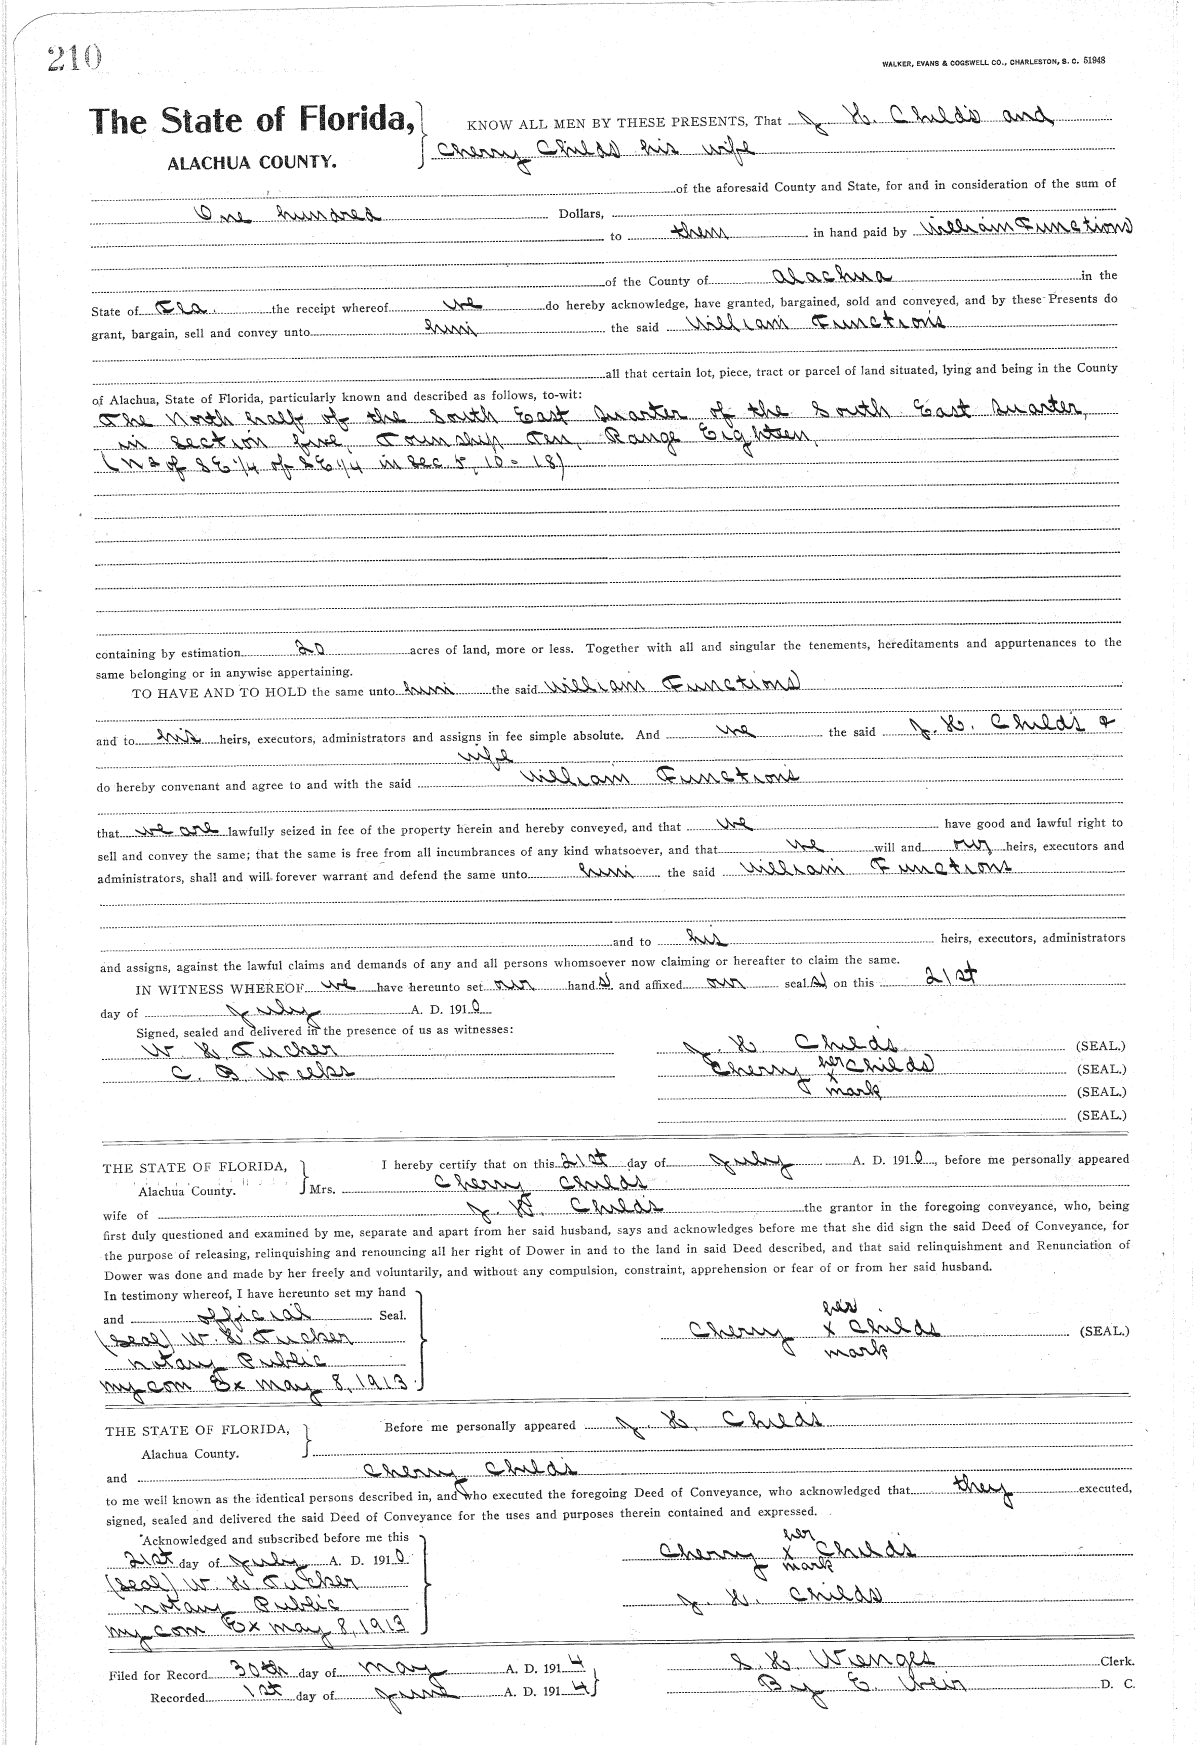 210
WALKER, EVANS & COGSWELL CO., CHARLESTON, S. C. 51948
The State of Florida, KNOW ALL MEN BY THESE PRESENTS, That J H. Childs and
ALACHUA COUNTY. Cherry Childs his wife
of the aforesaid County and State, for and in consideration of the sum of
One hundred Dollars,
to them in hand paid by William Functions
of the County of Alachua in the
State of Fla. the receipt whereof we do hereby acknowledge, have granted, bargained, sold and conveyed, and by these Presents do
grant, bargain, sell and convey unto him the said William Functions
all that certain lot, piece, tract or parcel of land situated, lying and being in the County
of Alachua, State of Florida, particularly known and described as follows, to-wit:
The North half of the South East Quarter of the South East Quarter,
in section five, Township Ten, Range Eighteen,
(N2 of SE 1/4 of SE 1/4 in Sec 5, 10-18)
containing by estimation 20 acres of land, more or less. Together with all and singular the tenements, hereditaments and appurtenances to the
same belonging or in anywise appertaining.
TO HAVE AND TO HOLD the same unto him the said William Functions
and to his heirs, executors, administrators and assigns in fee simple absolute. And we the said J. H. Childs &
wife
do hereby convenant and agree to and with the said William Functions
that we are lawfully seized in fee of the property herein and hereby conveyed, and that we have good and lawful right to
sell and convey the same; that the same is free from all incumbrances of any kind whatsoever, and that we will and our heirs, executors and
administrators, shall and will forever warrant and defend the same unto him the said William Functions
and to his heirs, executors, administrators
and assigns, against the lawful claims and demands of any and all persons whomsoever now claiming or hereafter to claim the same.
IN WITNESS WHEREOF we have hereunto set our hand s and affixed our seal s on this 21st
day of July A. D. 1910
Signed, sealed and delivered in the presence of us as witnesses:
W H Tucker J. H Childs (SEAL.)
C. B Weeks Cherry her x Childs (SEAL.)
mark (SEAL.)
(SEAL.)
THE STATE OF FLORIDA, I hereby certify that on this 21st day of July A. D. 1910, before me personally appeared
Alachua County. Mrs. Cherry Childs
wife of J. H. Childs the grantor in the foregoing conveyance, who, being
first duly questioned and examined by me, separate and apart from her said husband, says and acknowledges before me that she did sign the said Deed of Conveyance, for
the purpose of releasing, relinquishing and renouncing all her right of Dower in and to the land in said Deed described, and that said relinquishment and Renunciation of
Dower was done and made by her freely and voluntarily, and without any compulsion, constraint, apprehension or fear of or from her said husband.
In testimony whereof, I have hereunto set my hand
and official Seal. her
(Seal) W H Tucker Cherry x Childs (SEAL.)
Notary Public mark
my com Ex May 8, 1913
THE STATE OF FLORIDA, Before me personally appeared J. H. Childs
Alachua County.
and Cherry Childs
to me well known as the identical persons described in, and who executed the foregoing Deed of Conveyance, who acknowledged that they executed,
signed, sealed and delivered the said Deed of Conveyance for the uses and purposes therein contained and expressed.
Acknowledged and subscribed before me this her
21st day of July A. D. 1910 Cherry x Childs
(Seal) W H Tucker mark
Notary Public J. H. Childs
my com Ex May 8, 1913
Filed for Record 30th day of May A. D. 1914 S. H Wienges Clerk.
Recorded 1st day of June A. D. 1914 By E. Weir D. C.